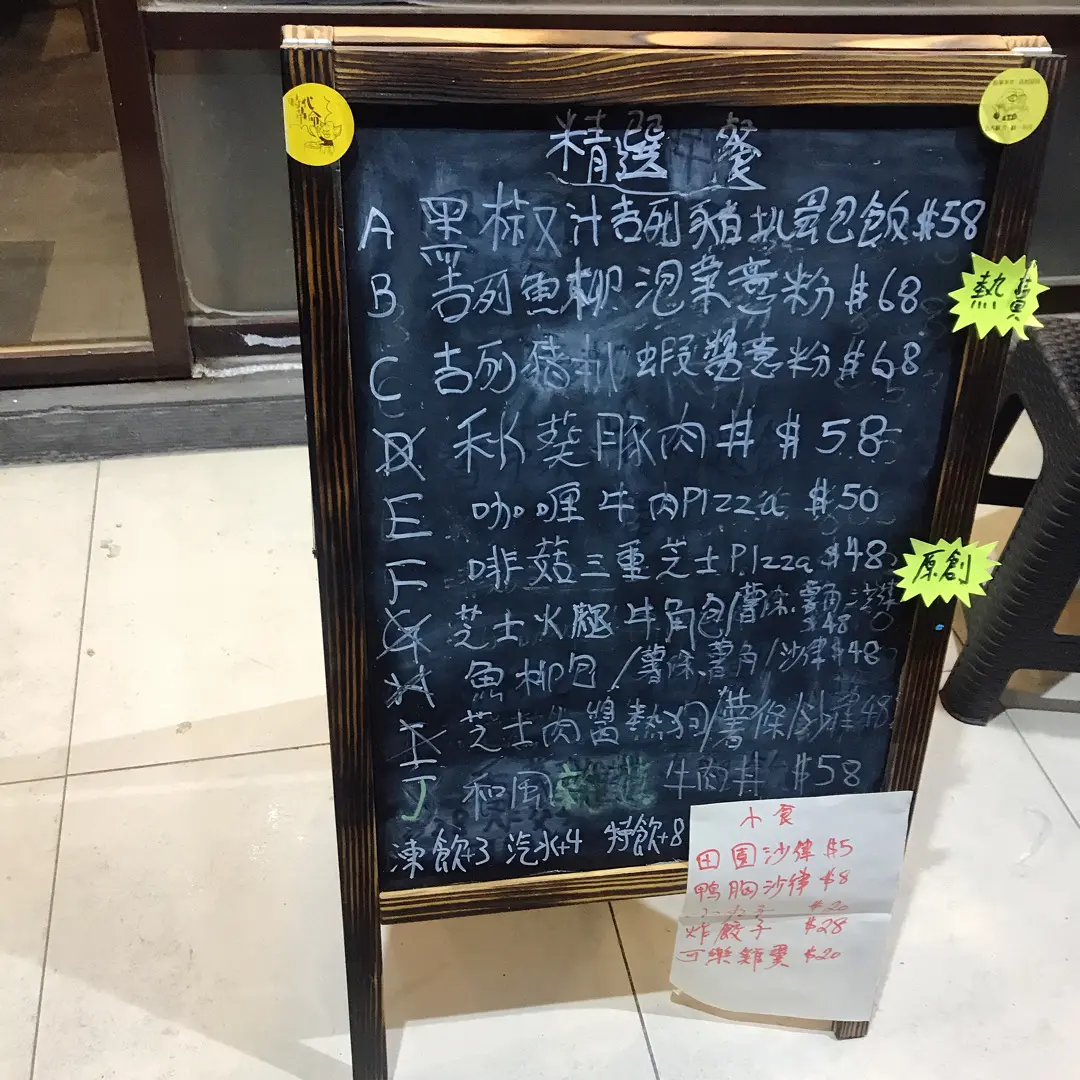 精選 餐
A 黑椒汁吉列豬扒蛋包飯 $58
B 吉列魚柳泡菜薏粉 $68
熱賣
C 吉列豬扒蝦醬薏粉 $68
D 秋葵豚肉丼 $58
E 咖喱牛肉PIzza $50
F 啡菇三重芝士PIzza $48
原創
G 芝士火腿牛角包/薯條.薯角 $48
H 魚柳包/薯條.薯角/沙律 $48
I 芝士肉醬熱狗/薯條/沙律 48
J 和風雜菇牛肉丼 $58
凍飲+3 汽水+4 特飲+8
小食
田園沙律 $5
鴨胸沙律 $8
$20
炸餃子 $28
可樂雞翼 $20